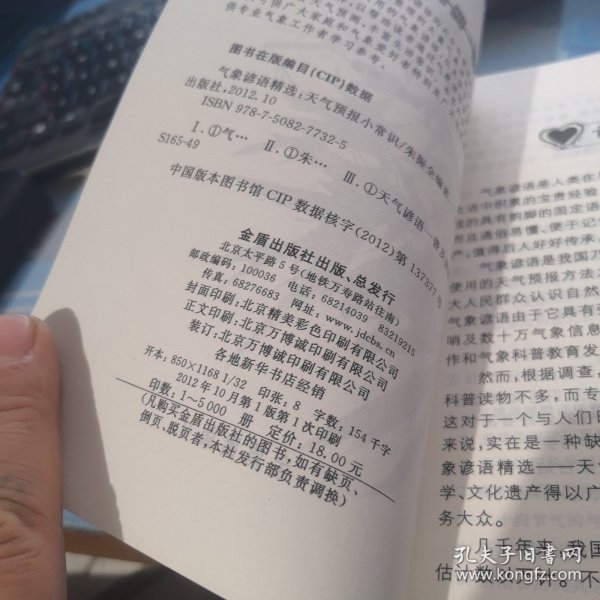 供专业气象工作者学习参考。
图书在版编目(CIP)数据
气象谚语精选:天气预报小常识/朱振全编著
出版社,2012.10
ISBN 978-7-5082-7732-5
Ⅰ.①气… Ⅱ.①朱… Ⅲ.①天气谚语
S165-49
中国版本图书馆CIP数据核字(2012)第137377号
金盾出版社出版、总发行
北京太平路5号(地铁万寿路站往南)
邮政编码:100036 电话:68214039 83219215
传真:68276683 网址:www.jdcbs.cn
封面印刷:北京精美彩色印刷有限公司
正文印刷:北京万博诚印刷有限公司
装订:北京万博诚印刷有限公司
各地新华书店经销
开本:850×1168 1/32 印张:8 字数:154千字
2012年10月第1版第1次印刷
印数:1~5000册 定价:18.00元
(凡购买金盾出版社的图书,如有缺页、
倒页、脱页者,本社发行部负责调换)
气象谚语是人类在
活中积累的宝贵经验
的具有的脚的固定语
而且通俗易懂、便于记
产,值得后人好好传承
气象谚语是我国
使用的天气预报方法
大人民群众认识自然
气象谚语由于它具有
哨及数十万气象信息
作和气象科普教育发
然而,根据调查,
科普读物不多,而专
这对于一个与人们日
来说,实在是一种缺
象谚语精选——天
学、文化遗产得以广
务大众。
几千年来,我国
估计数以万计。不
孔夫子旧书网
www.kongfz.com